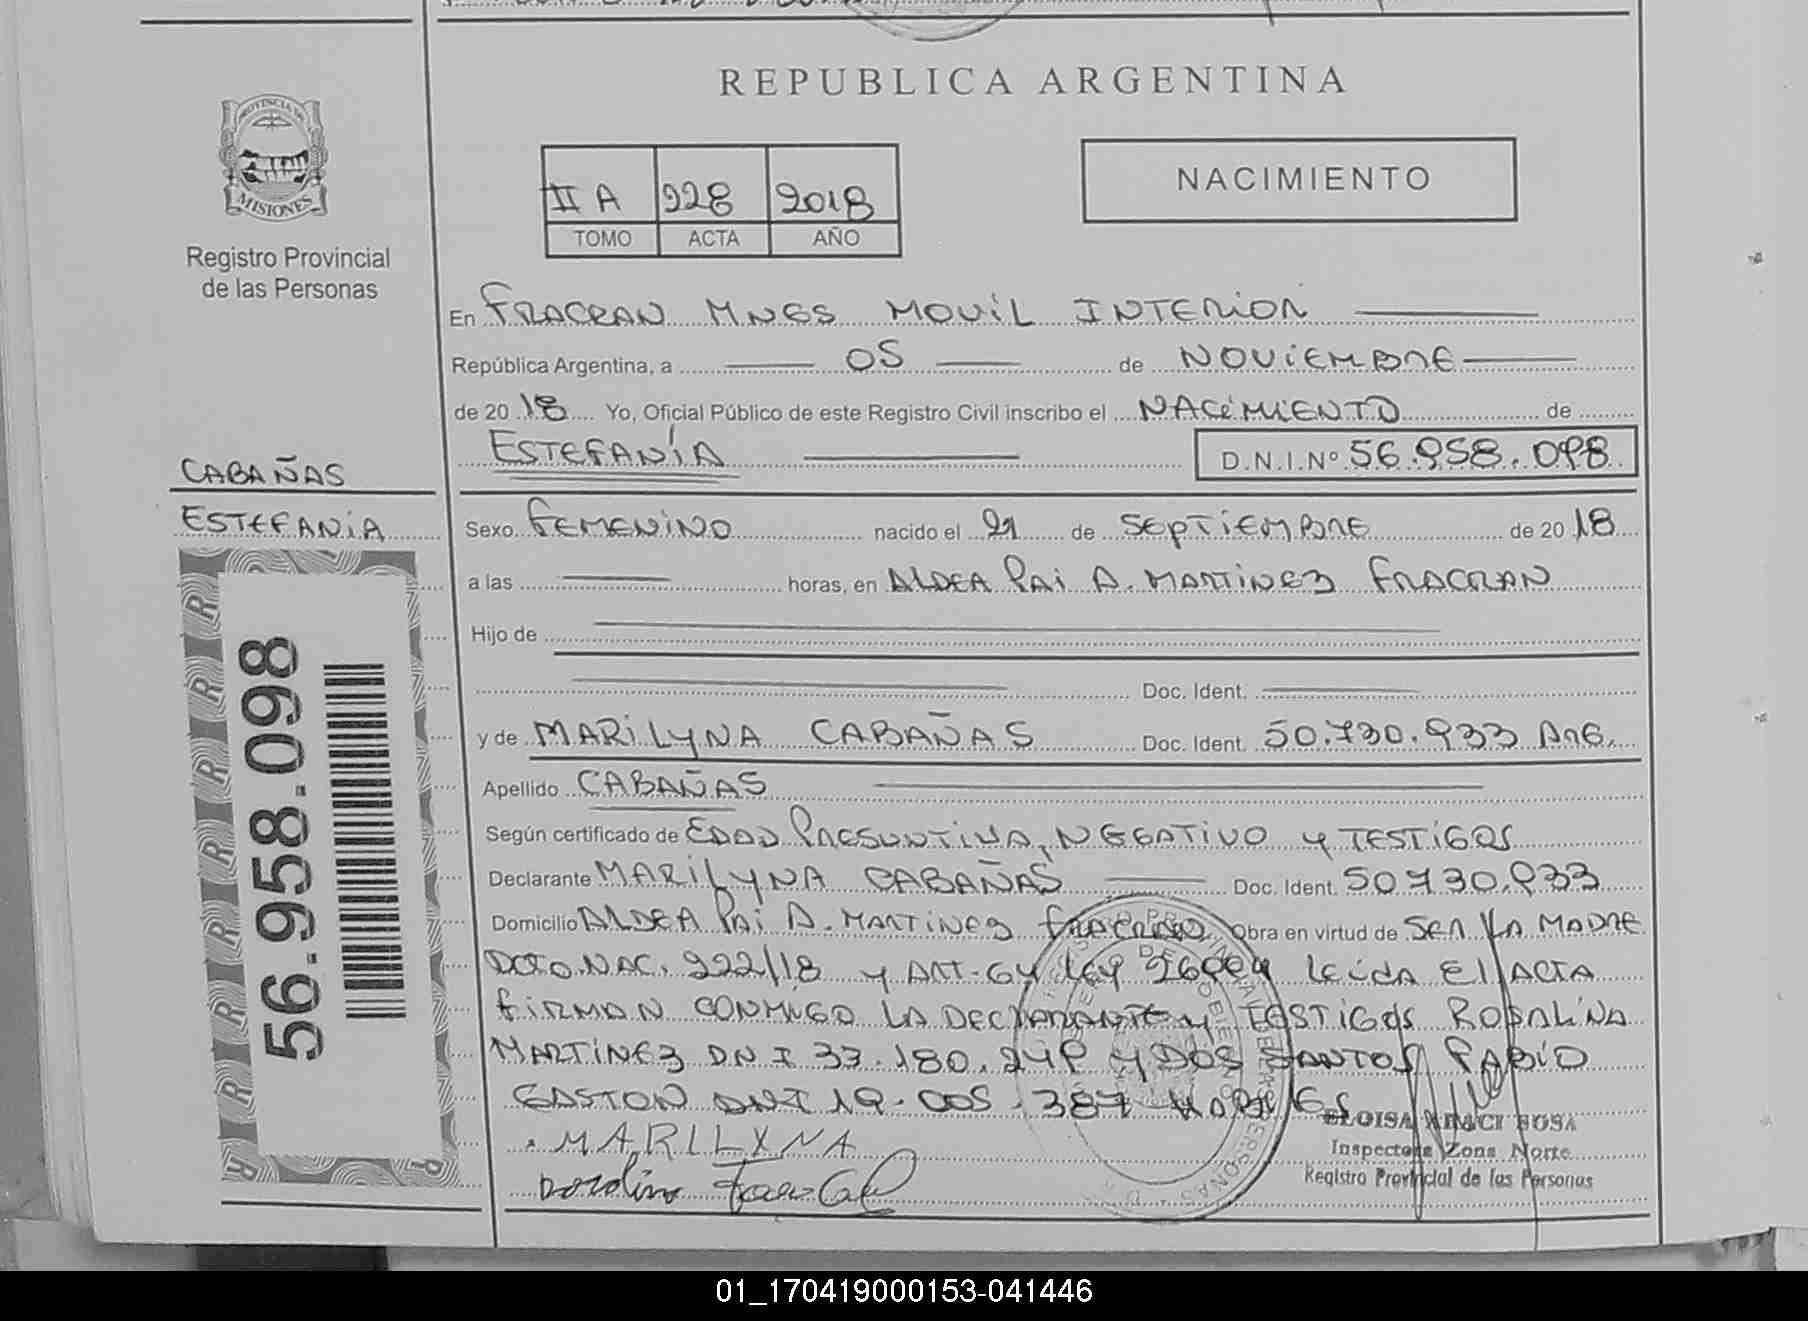 REPUBLICA ARGENTINA
PROVINCIA DE
MISIONES
Registro Provincial
de las Personas
II A 228 2018
TOMO ACTA AÑO
NACIMIENTO
En FRACRAN MNES MOVIL INTERIOR
República Argentina, a 05 de NOVIEMBRE
de 20 18 Yo, Oficial Público de este Registro Civil inscribo el NACIMIENTO de
ESTEFANÍA D.N.I.Nº 56.958.098
CABAÑAS
ESTEFANIA
56.958.098
Sexo FEMENINO nacido el 21 de SEPTIEMBRE de 20 18
a las horas, en ALDEA PAI A. MARTINEZ FRACRAN
Hijo de
Doc. Ident.
y de MARILYNA CABAÑAS Doc. Ident. 50.730.933 ARG.
Apellido CABAÑAS
Según certificado de EDAD PRESUNTIVA, NEGATIVO Y TESTIGOS
Declarante MARILYNA CABAÑAS Doc. Ident. 50730.933
Domicilio ALDEA PAI A. MARTINEZ FRACRAN Obra en virtud de SER LA MADRE
DCTO.NAC. 222/18 y ART. 64 LEY LEIDA El ACTA
FIRMAN CONMIGO LA DECLARANTE y TESTIGOS ROSALINA
MARTINEZ DNI 33.180.249 y DOS SANTOS FABIO
GASTON DNI 19.005.387
MARILYNA
ELOISA BOSA
Inspectora Zona Norte
Registro Provincial de las Personas
01_170419000153-041446